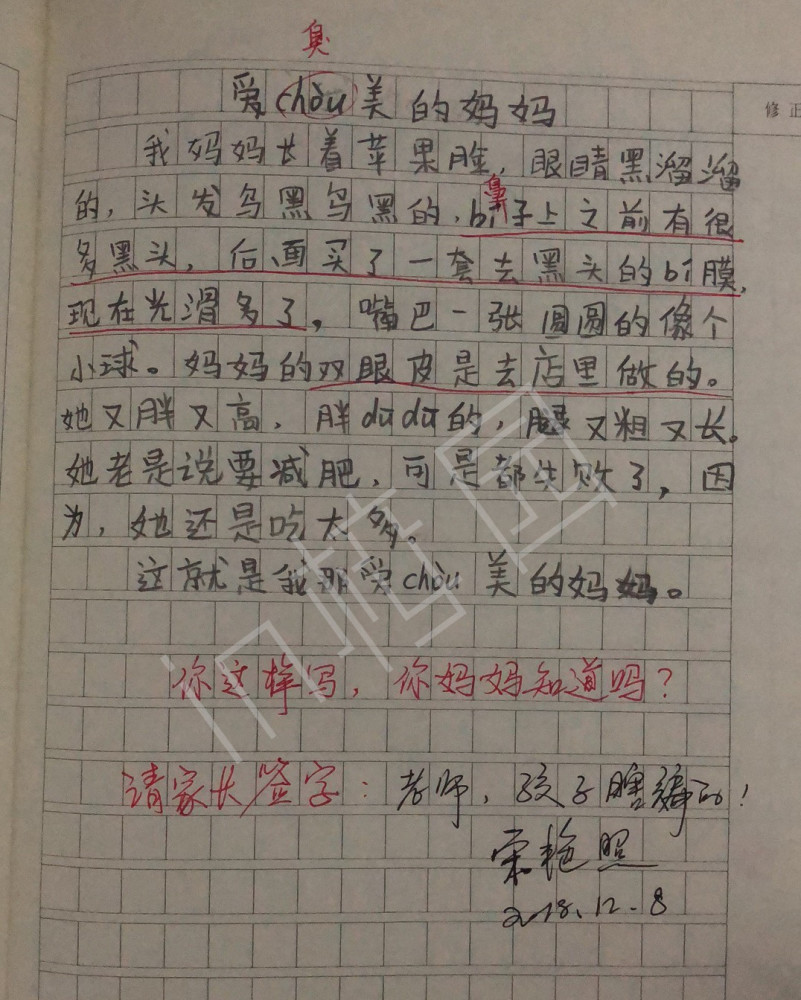 臭
爱chòu美的妈妈
修正
我妈妈长着苹果脸，眼睛黑溜溜
的，头发乌黑乌黑的，bí子上之前有很
鼻
多黑头，后面买了一套去黑头的bí膜，
现在光滑多了，嘴巴一张圆圆的像个
小球。妈妈的双眼皮是去店里做的。
她又胖又高，胖dūdū的，腿又粗又长。
她老是说要减肥，可是都失败了，因
为，她还是吃太多。
这就是我那爱chòu美的妈妈。
你这样写，你妈妈知道吗？
请家长签字：老师，孩子瞎编的！
2018.12.8